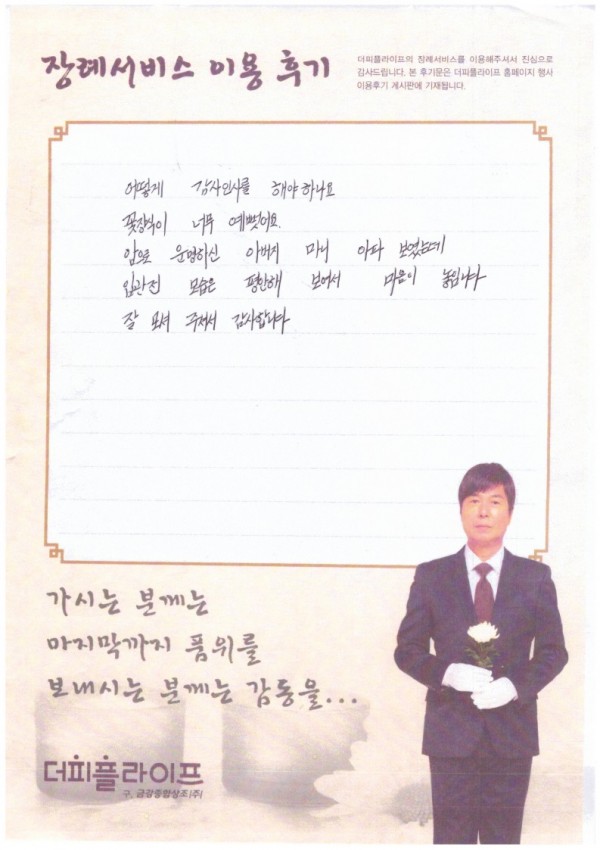 장례서비스 이용 후기
더피플라이프의 장례서비스를 이용해주셔서 진심으로
감사드립니다. 본 후기문은 더피플라이프 홈페이지 행사
이용후기 게시판에 기재됩니다.
어떻게 감사인사를 해야하나요
꽃장식이 너무 예뻤어요.
암으로 운명하신 아버지 마니 아파 보였는데
입관전 모습은 편안해 보여서 마음이 놓입니다
잘 모셔 주셔서 감사합니다
가시는 분께는
마지막까지 품위를
보내시는 분께는 감동을...
더피플라이프
구. 금강종합상조(주)